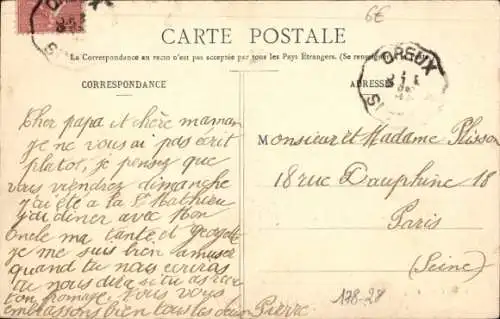 6€
CARTE POSTALE
La Correspondance au recto n'est pas acceptée par tous les Pays Étrangers. (Se renseigner
CORRESPONDANCE
ADRESSE
Cher papa et chère maman
je ne vous ai pas écrit
platot, je pensez que
vous viendrez dimanche
j'ai été a la St Mathieu
j'ai diner avec Mon
Oncle ma tante, et
je me suis bien amuser
quand tu nous écriras
tu nous dira si tu as reçu
ton fromage. Nous vous
embrassons bien tous les deux Pierre
Monsieur et Madame Plisson
18 rue Dauphine 18
Paris
(Seine)
178-28